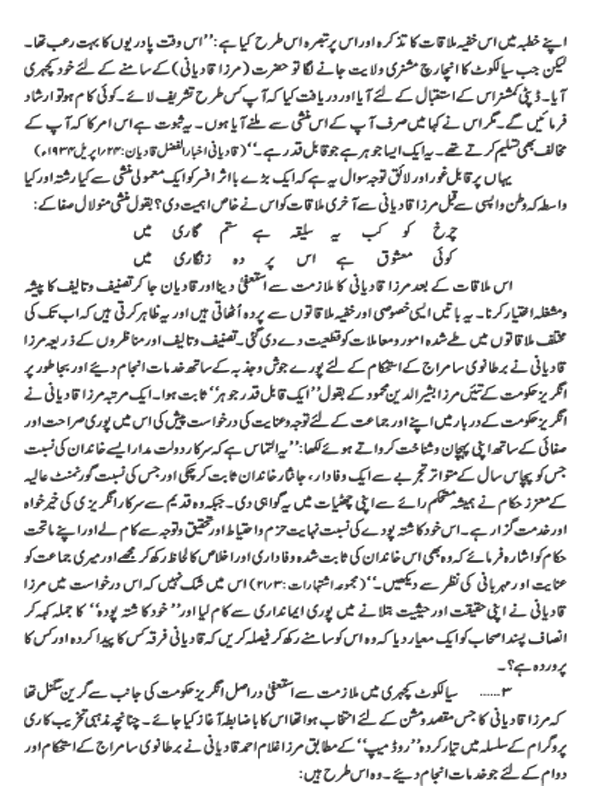 اپنے خطبہ میں اس خفیہ ملاقات کا تذکرہ اور اس پر تبصرہ اس طرح کیا ہے: ’’اس وقت پادریوں کا بہت رعب تھا۔
لیکن جب سیالکوٹ کا انچارج مشنری ولایت جانے لگا تو حضرت (مرزا قادیانی) کے سامنے کے لئے خود کچہری
آیا۔ ڈپٹی کمشنر اس کے استقبال کے لئے آیا اور دریافت کیا کہ آپ کس طرح تشریف لائے۔ کوئی کام ہو تو ارشاد
فرمائیں گے۔ مگر اس نے کہا میں صرف آپ کے اس منشی سے ملنے آیا ہوں۔ یہ ثبوت ہے اس امر کا کہ آپ کے
مخالف بھی تسلیم کرتے تھے۔ یہ ایک ایسا جوہر ہے جو قابل قدر ہے۔‘‘ (قادیانی اخبار الفضل قادیان: ۲۴؍اپریل ۱۹۳۴ء)
یہاں پر قابل غور اور لائق توجہ سوال یہ ہے کہ ایک بڑے با اثر افسر کو ایک معمولی منشی سے کیا رشتہ اور کیا
واسطہ کہ وطن واپسی سے قبل مرزا قادیانی سے آخری ملاقات کو اس نے خاص اہمیت دی؟ بقول منشی منولال صفا کے:
چرخ کو کب یہ سلیقہ ہے ستم گاری میں
کوئی معشوق ہے اس پر دہ زنگاری میں
اس ملاقات کے بعد مرزا قادیانی کا ملازمت سے استعفیٰ دینا اور قادیان جا کر تصنیف وتالیف کا پیشہ
ومشغلہ اختیار کرنا۔ یہ باتیں ایسی خصوصی اور خفیہ ملاقاتوں سے پردہ اُٹھاتی ہیں اور یہ ظاہر کرتی ہیں کہ اب تک کی
مختلف ملاقاتوں میں طے شدہ امور ومعاملات کو قطعیت دے دی گئی۔ تصنیف وتالیف اور مناظروں کے ذریعہ مرزا
قادیانی نے برطانوی سامراج کے استحکام کے لئے پورے جوش وجذبہ کے ساتھ خدمات انجام دیئے اور بجا طور پر
انگریز حکومت کے تئیں مرزا بشیر الدین محمود کے بقول ’’ایک قابل قدر جوہر‘‘ ثابت ہوا۔ ایک مرتبہ مرزا قادیانی نے
انگریز حکومت کے دربار میں اپنے اور جماعت کے لئے توجہ وعنایت کی درخواست پیش کی اس میں پوری صراحت اور
صفائی کے ساتھ اپنی پہچان وشناخت کرواتے ہوئے لکھا: ’’یہ التماس ہے کہ سرکار دولت مدار ایسے خاندان کی نسبت
جس کو پچاس سال کے متواتر تجربے سے ایک وفادار، جانثار خاندان ثابت کر چکی اور جس کی نسبت گورنمنٹ عالیہ
کے معزز حکام نے ہمیشہ مستحکم رائے سے اپنی چٹھیات میں یہ گواہی دی۔ جبکہ وہ قدیم سے سرکار انگریزی کی خیر خواہ
اور خدمت گزار ہے۔ اس خود کاشتہ پودے کی نسبت نہایت حزم واحتیاط اور تحقیق وتوجہ سے کام لے اور اپنے ماتحت
حکام کو اشارہ فرمائے کہ وہ بھی اس خاندان کی ثابت شدہ وفاداری اور اخلاص کا لحاظ رکھ کر مجھے اور میری جماعت کو
عنایت اور مہربانی کی نظر سے دیکھیں۔‘‘ (مجموعہ اشتہارات: ۲۱/۳) اس میں شک نہیں کہ اس درخواست میں مرزا
قادیانی نے اپنی حقیقت اور حیثیت بتلانے میں پوری ایمانداری سے کام لیا اور ’’خود کاشتہ پودہ‘‘ کا جملہ کہہ کر
انصاف پسند اصحاب کو ایک معیار دیا کہ وہ اس کو سامنے رکھ کر فیصلہ کریں کہ قادیانی فرقہ کس کا پیدا کردہ اور کس کا
پروردہ ہے؟۔
۳...... سیالکوٹ کچہری میں ملازمت سے استعفیٰ دراصل انگریز حکومت کی جانب سے گرین سگنل تھا
کہ مرزا قادیانی کا جس مقصد ومشن کے لئے انتخاب ہوا تھا اس کا باضابطہ آغاز کیا جائے۔ چنانچہ مذہبی تخریب کاری
پروگرام کے سلسلہ میں تیار کردہ ’’روڈ میپ‘‘ کے مطابق مرزا غلام احمد قادیانی نے برطانوی سامراج کے استحکام اور
دوام کے لئے جو خدمات انجام دیئے۔ وہ اس طرح ہیں: